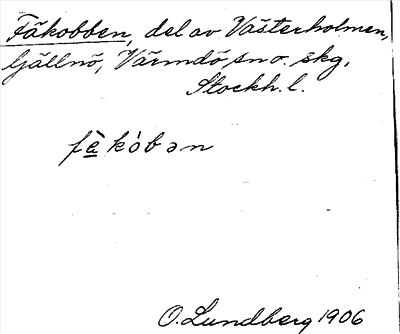 Fäkobben, del av Västerholmen,
Gällnö, Värmdö, sn o. skg,
Stockh. l.
fὲ kὸbən
O. Lundberg 1906